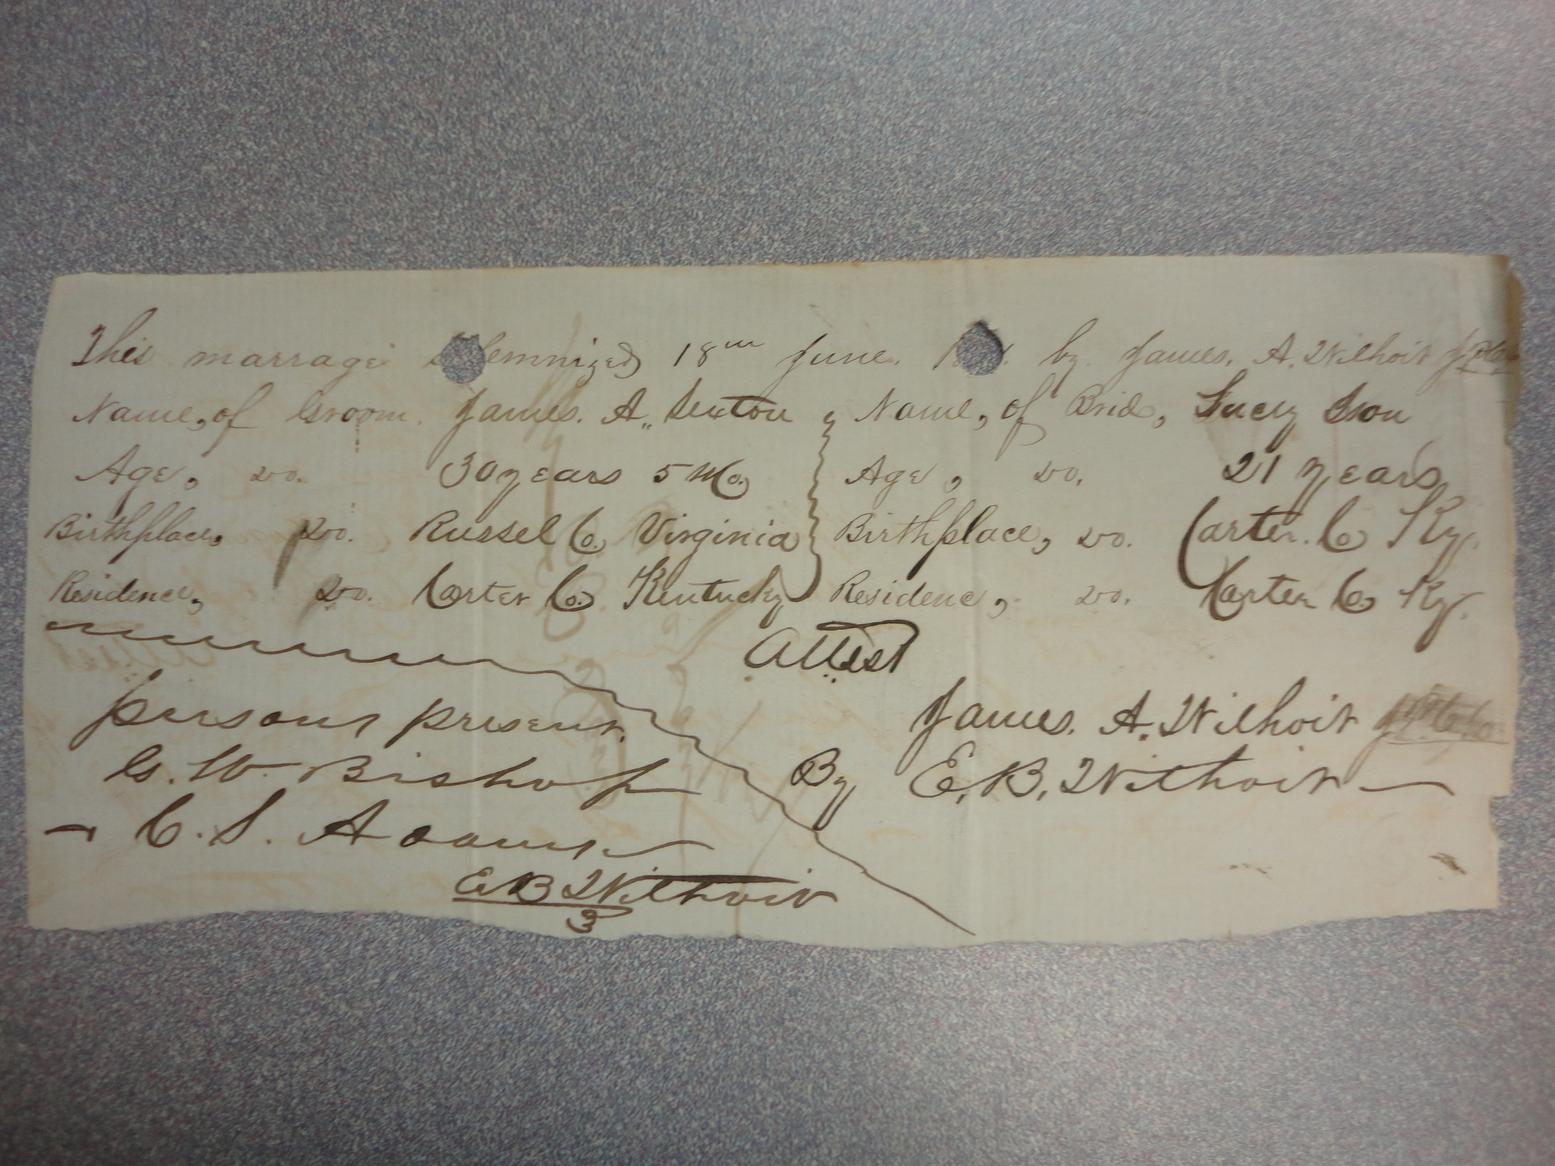 This marrage solemnized 18th June. by. James. A. Wilhoit
Name, of Groom. James. A,, Sexton, Name, of Brid, Lucy Ison
Age, Do. 30 years 5 Mo, Age, Do. 21 years
Birthplace, Do. Russel Co. Virginia Birthplace, Do. Carter. Co Ky.
Residence, Do. Carter Co. Kentucky Residence, Do. Carter Co Ky.
Attest
persons present. James. A. Wilhoit
G. W. Bishop By E. B. Wilhoit
C. S. Adams
E B Wilhoit
3